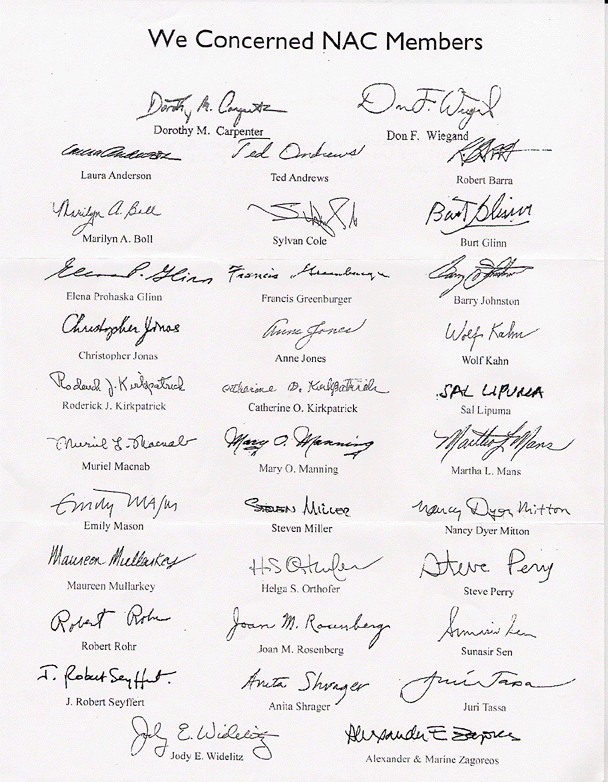 We Concerned NAC Members
Dorothy M. Carpenter Don F. Wiegand
Dorothy M. Carpenter Don F. Wiegand
Laura Anderson Ted Andrews
Laura Anderson Ted Andrews Robert Barra
Marilyn A. Boll Burt Glinn
Marilyn A. Boll Sylvan Cole Burt Glinn
Elena P. Glinn Francis Greenburger Barry Johnston
Elena Prohaska Glinn Francis Greenburger Barry Johnston
Christopher Jonas Anne Jones Wolf Kahn
Christopher Jonas Anne Jones Wolf Kahn
Roderick J. Kirkpatrick Catherine O. Kirkpatrick SAL LIPUMA
Roderick J. Kirkpatrick Catherine O. Kirkpatrick Sal Lipuma
Muriel L. Macnab Mary O. Manning Martha L Mans
Muriel Macnab Mary O. Manning Martha L. Mans
Emily Mason Steven Miller Nancy Dyer Mitton
Emily Mason Steven Miller Nancy Dyer Mitton
Maureen Mullarkey HS Orthofer Steve Perry
Maureen Mullarkey Helga S. Orthofer Steve Perry
Robert Rohr Joan M. Rosenberg Sunasir Sen
Robert Rohr Joan M. Rosenberg Sunasir Sen
J. Robert Seyffert. Anita Shrager Juri Tassa
J. Robert Seyffert Anita Shrager Juri Tassa
Jody E. Widelitz Alexander E Zagoreos
Jody E. Widelitz Alexander & Marine Zagoreos